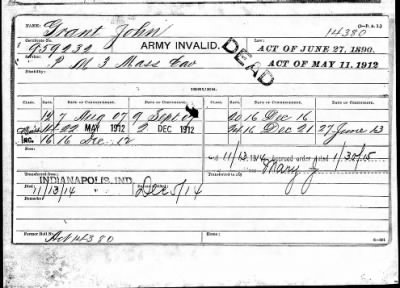 NAME: Grant John (O-P. A. I.)
14380
Certificate No.
959232 ARMY INVALID. DEAD ACT OF JUNE 27, 1890.
P M 3 Mass Cav ACT OF MAY 11, 1912
Disability:
CLASS. RATE. DATE OF COMMENCEMENT. DATE OF CERTIFICATE. CLASS. RATE. DATE OF COMMENCEMENT. DATE OF CERTIFICATE.
12 7 Aug 07 9 Sept 07 20 16 Dec 16
22 MAY 1912 2 DEC 1912 24 16 Dec 21 27 June 13
INC. 16 16 Dec 12
d. 11/13, 1914 Accrued order dated 1/30/15
Transferred from
INDIANAPOLIS, IND. Mary J
11/13/14 Dec 5/14
Remarks:
Former Roll No.
Act 14380